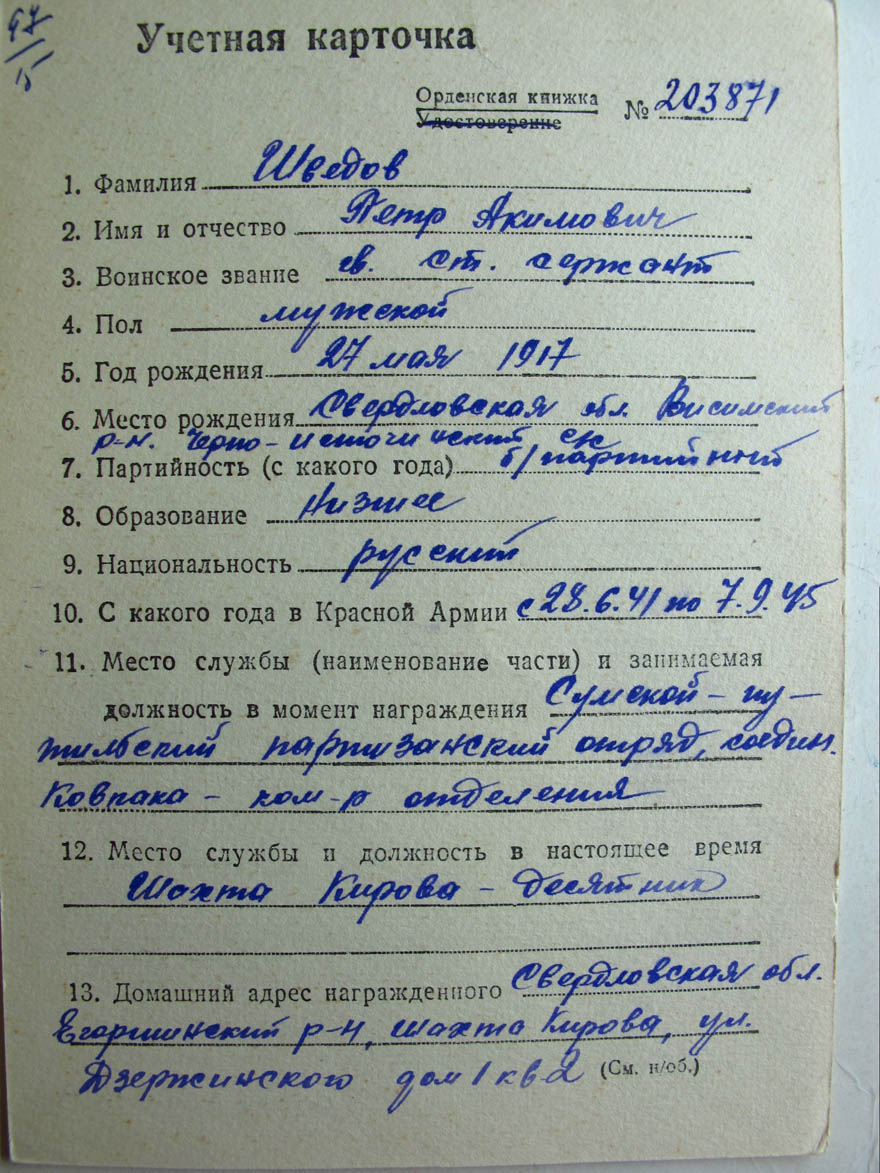 97/15
Учетная карточка
Орденская книжка
Удостоверение
№ 203871
1. Фамилия Шведов
2. Имя и отчество Петр Акимович
3. Воинское звание гв. ст. сержант
4. Пол мужской
5. Год рождения 27 мая 1917
6. Место рождения Свердловская обл. Висимский
р-н. Черно-источинский с/с
7. Партийность (с какого года) б/партийный
8. Образование Низшее
9. Национальность русский
10. С какого года в Красной Армии с 28.6.41 по 7.9.45
11. Место службы (наименование части) и занимаемая
должность в момент награждения Сумской-пу-
тильский партизанский отряд, соедин.
Ковпака - ком-р отделения
12. Место службы и должность в настоящее время
Шахта Кирова - десятник
13. Домашний адрес награжденного Свердловская обл.
Егоршинский р-н, шахта Кирова, ул.
Дзержинского дом 1 кв 2 (См. н/об.)